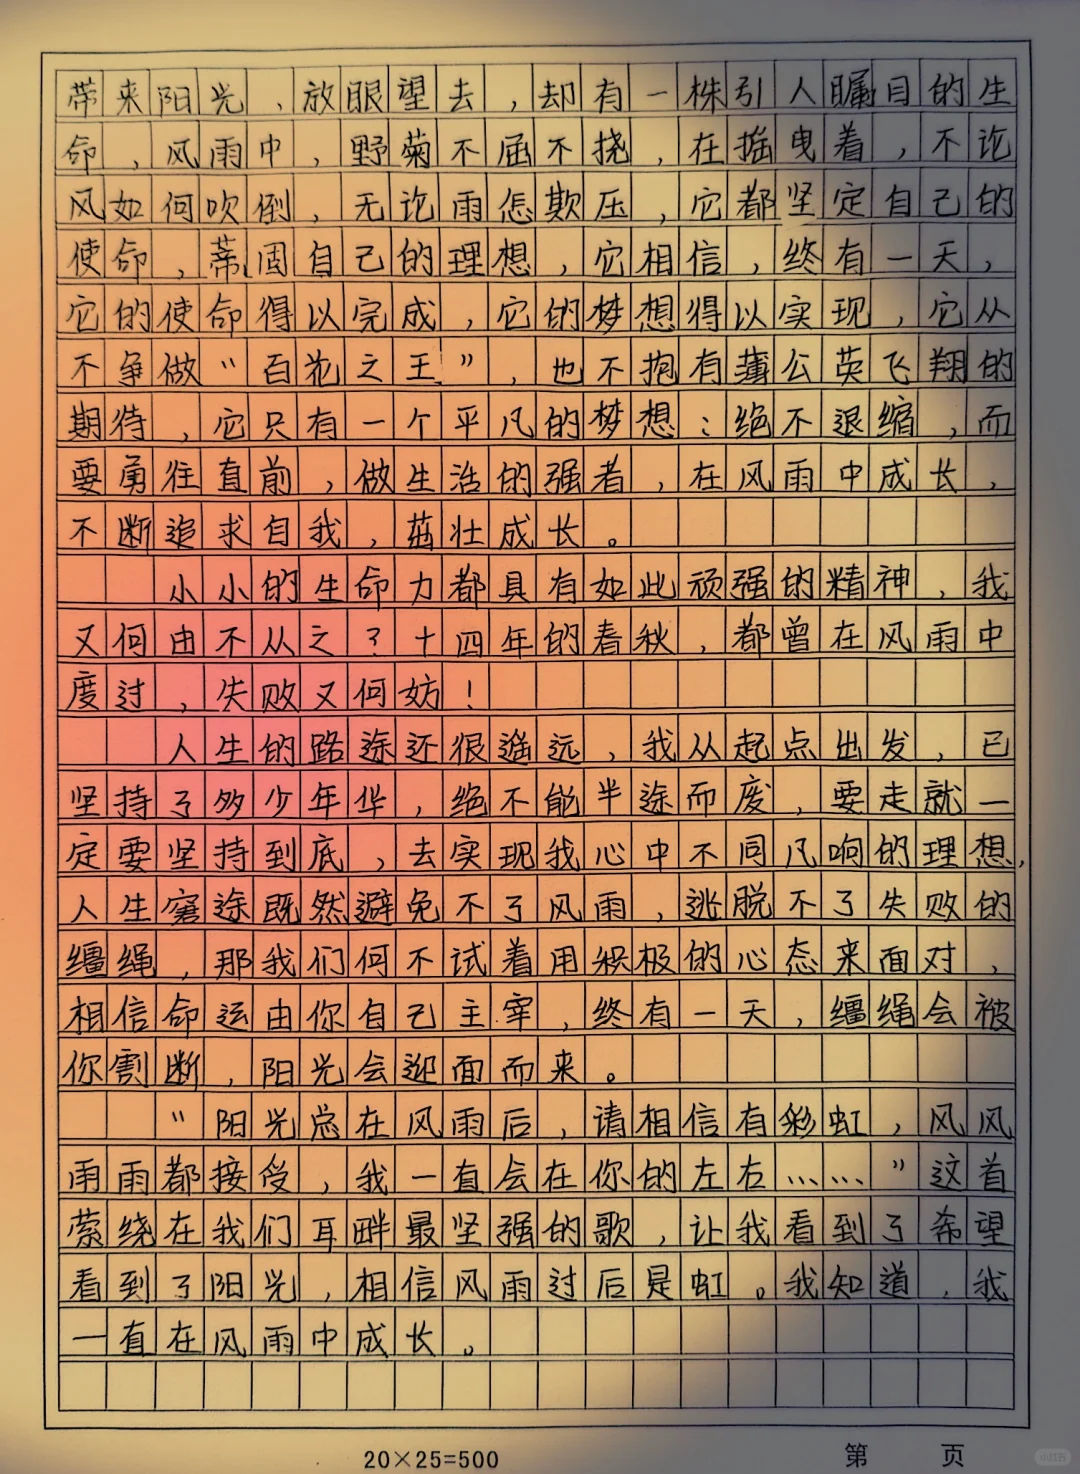 带来阳光、放眼望去，却有一株引人瞩目的生
命，风雨中，野菊不屈不挠，在摇曳着，不论
风如何吹倒，无论雨怎欺压，它都坚定自己的
使命，蒂固自己的理想，它相信，终有一天，
它的使命得以完成，它的梦想得以实现，它从
不争做“百花之王”，也不抱有蒲公英飞翔的
期待，它只有一个平凡的梦想：绝不退缩，而
要勇往直前，做生活的强者，在风雨中成长，
不断追求自我，茁壮成长。
小小的生命力都具有如此顽强的精神，我
又何由不从之？十四年的春秋，都曾在风雨中
度过，失败又何妨！
人生的路途还很遥远，我从起点出发，已
坚持了多少年华，绝不能半途而废，要走就一
定要坚持到底，去实现我心中不同凡响的理想，
人生窘途既然避免不了风雨，逃脱不了失败的
缰绳，那我们何不试着用积极的心态来面对，
相信命运由你自己主宰，终有一天，缰绳会被
你割断，阳光会迎面而来。
“阳光总在风雨后，请相信有彩虹，风风
雨雨都接受，我一直会在你的左右……”这首
萦绕在我们耳畔最坚强的歌，让我看到了希望
看到了阳光，相信风雨过后是虹。我知道，我
一直在风雨中成长。
20×25=500
第 页